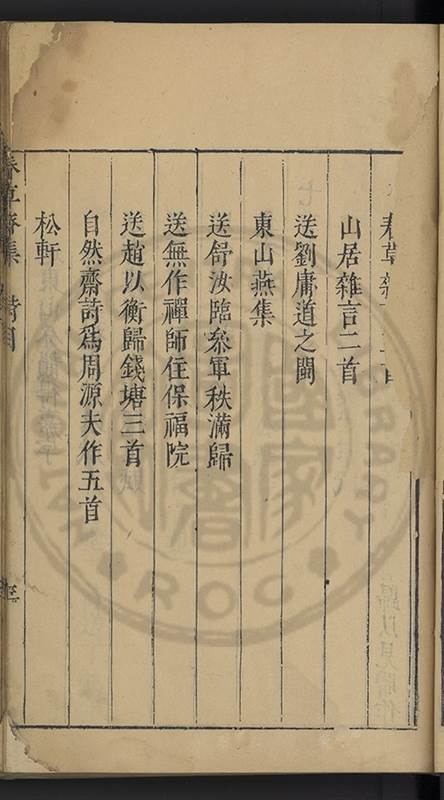 春草齋
山居雜言二首
送劉庸道之閩
東山燕集
送舒汝臨參軍秩滿歸
送無作禪師住保福院
送趙以衡歸錢塘三首
自然齋詩爲周源夫作五首
松軒
春草齋集 詩目